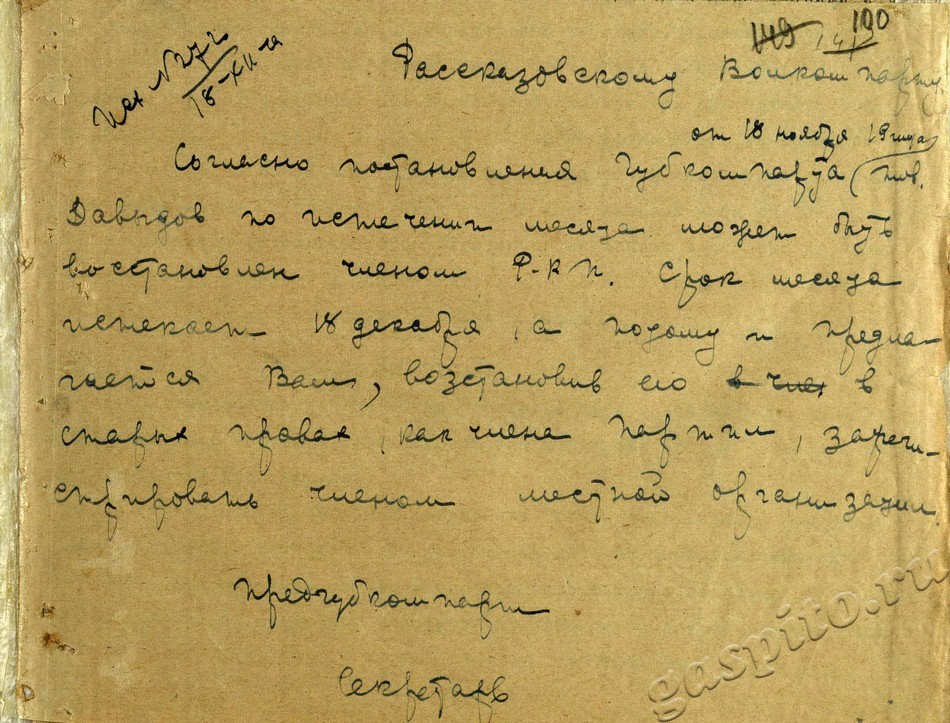 149 141 100
Исх № 272
18-XII-19
Рассказовскому Волкомпарту
от 18 ноября 19 года
Согласно постановления Губкомпарта тов.
Давыдов по истечении месяца может быть
востановлен членом Р-К П. Срок месяца
истекает 18 декабря, а потому и предла-
гается Вам, возстановив его в член в
старых правах, как члена партии, зареги-
стрировать членом местной организации.
Предгубкомпарт
Секретарь
gaspito.ru